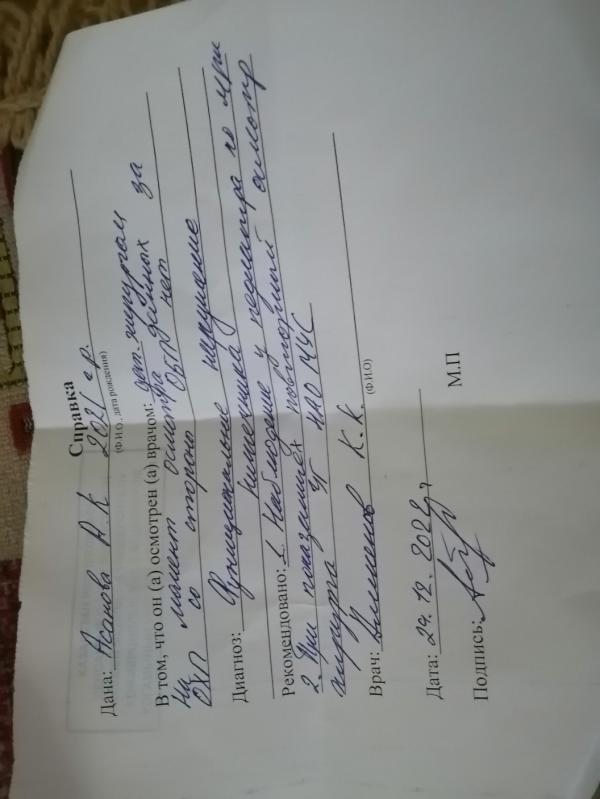 Справка
Дана: Асанова А.К 2021 г.р.
(Ф.И.О., дата рождения)
В том, что он (а) осмотрен (а) врачом: дет. хирургом
На момент осмотра данных за
ОХП со стороны ОБП нет
Диагноз: Функциональное нарушение
кишечника
Рекомендовано: 1. Наблюдение у педиатра по м/ж
2. При показаниях повторный осмотр
хирурга
Врач: К.К.
(Ф.И.О)
Дата: 29.12.2022г
Подпись:
М.П